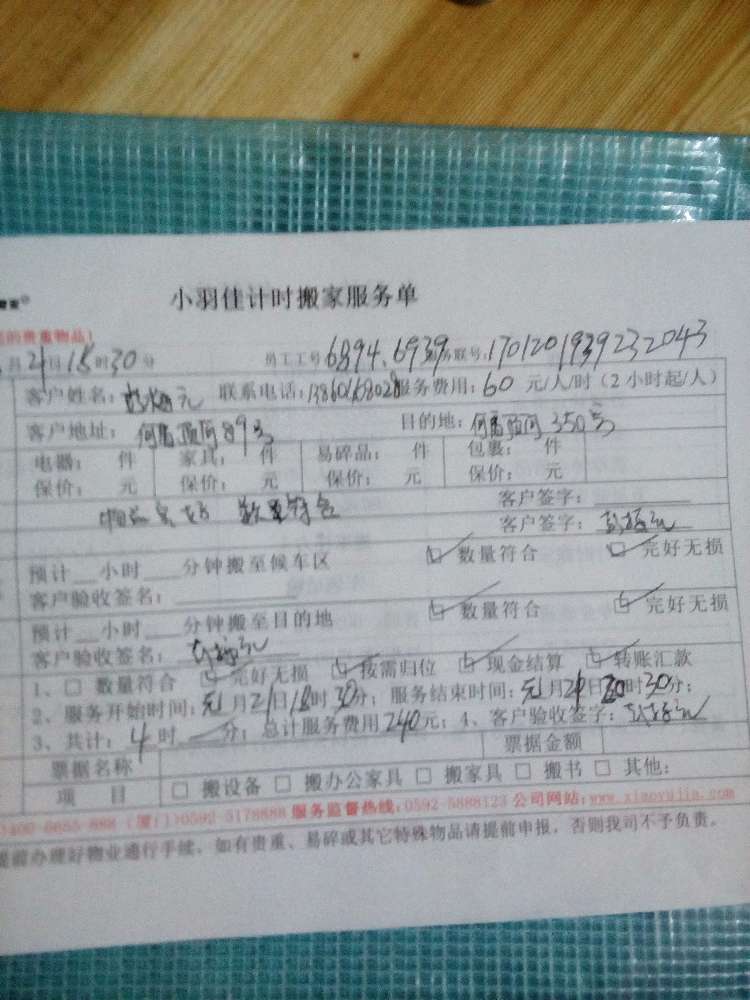 小羽佳计时搬家服务单
的贵重物品!
月21日18时30分 员工工号6894、6939 务联号:170120193923 2043
客户姓名: 联系电话:13860168028 服务费用:60 元/人/时(2小时起/人)
客户地址: 何厝顶何89号 目的地:何厝顶何350号
电器: 件 家具: 件 易碎品: 件 包裹: 件
保价: 元 保价: 元 保价: 元 保价: 元
物品完好 数量符合 客户签字:
客户签字:
预计__小时___分钟搬至候车区 数量符合 完好无损
客户验收签名:
预计__小时___分钟搬至目的地 数量符合 完好无损
客户验收签名:
1、□ 数量符合 完好无损 按需归位 现金结算 转账汇款
2、服务开始时间:元月21日18时30分;服务结束时间:元月21日20时30分;
3、共计:4时 分;总计服务费用240元;4、客户验收签字:
票据名称 票据金额
项 目 □ 搬设备 □ 搬办公家具 □ 搬家具 □ 搬书 □ 其他:
400-6655-888 (厦门)0592-5178888 服务监督热线:0592-5888123 公司网站:www.xiaoyujia.com
提前办理好物业通行手续,如有贵重、易碎或其它特殊物品请提前申报,否则我司不予负责。